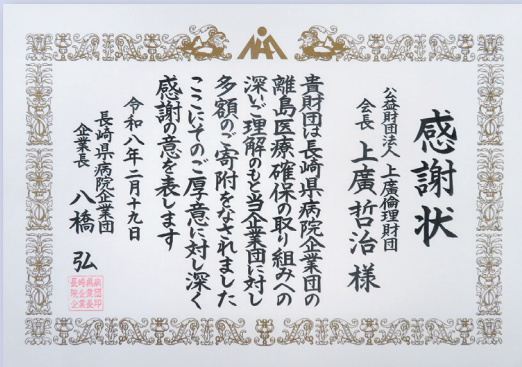 感謝状
公益財団法人 上廣倫理財団
会長 上廣哲治様
貴財団は長崎県病院企業団の
離島医療確保の取り組みへの
深いご理解のもと当企業団に対し
多額のご寄附をなされました
ここにそのご厚意に対し深く
感謝の意を表します
令和八年二月十九日
長崎県病院企業団
企業長 八橋 弘
長崎県病
院企業団
企業長印